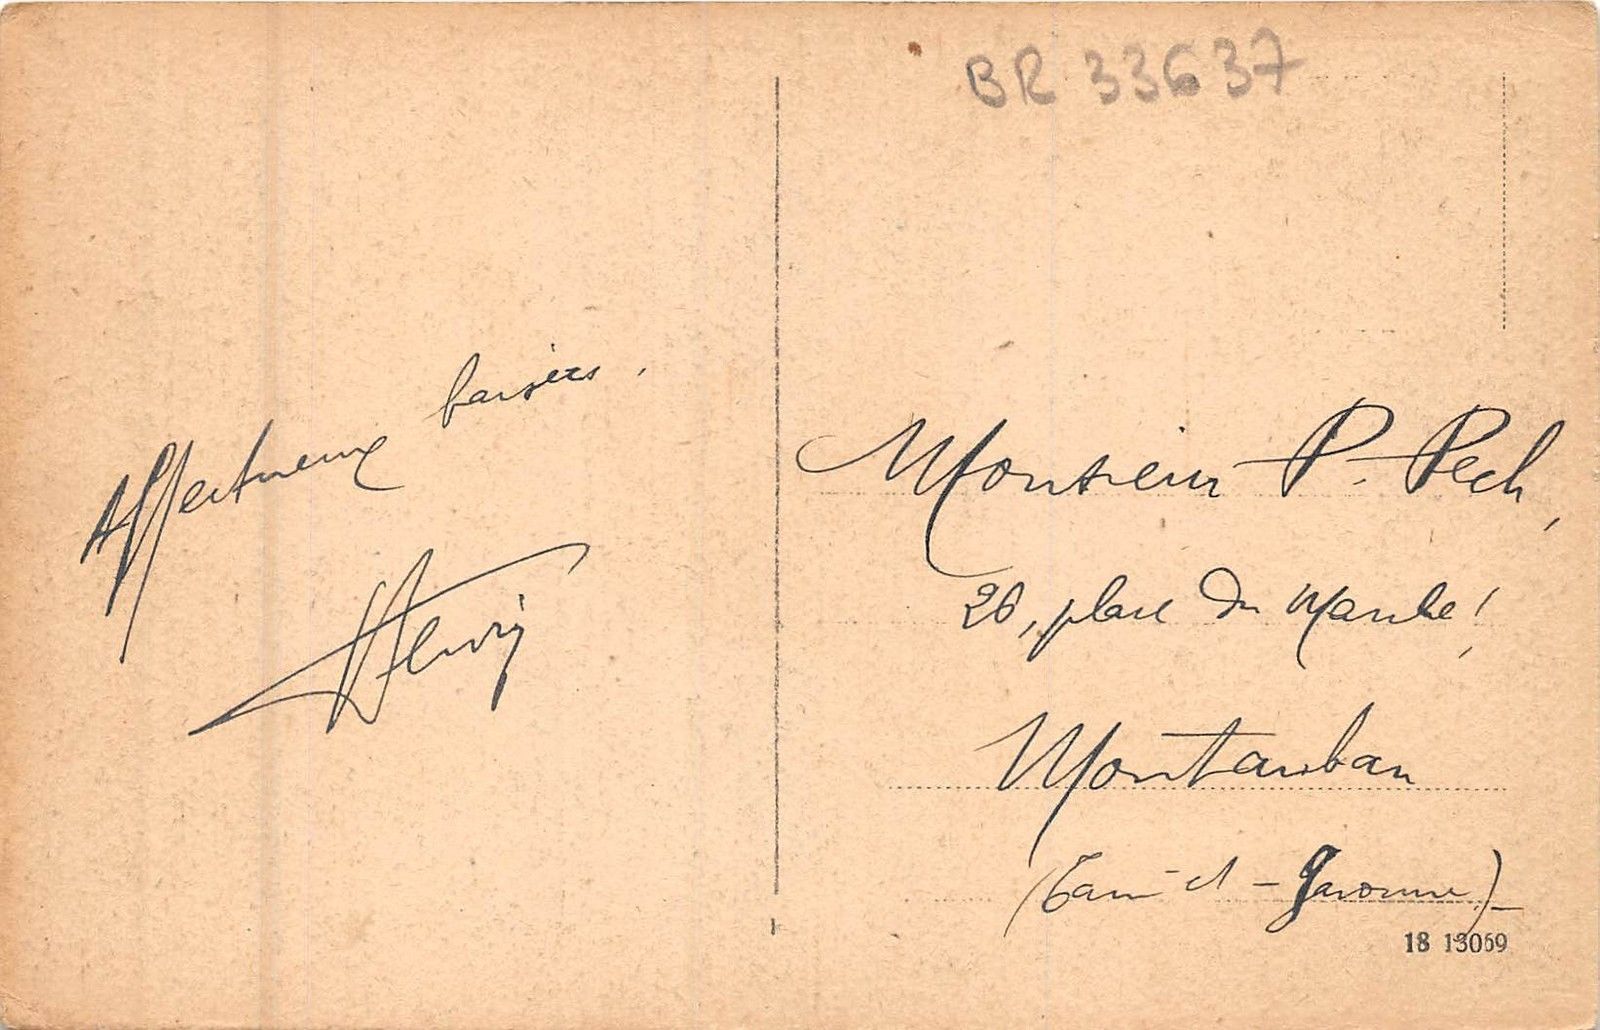 BR 33637
Affectueux baisers.
Henri
Monsieur P. Pech,
26, place du Marché,
Montauban
(Tarn-et-Garonne)
18 13069